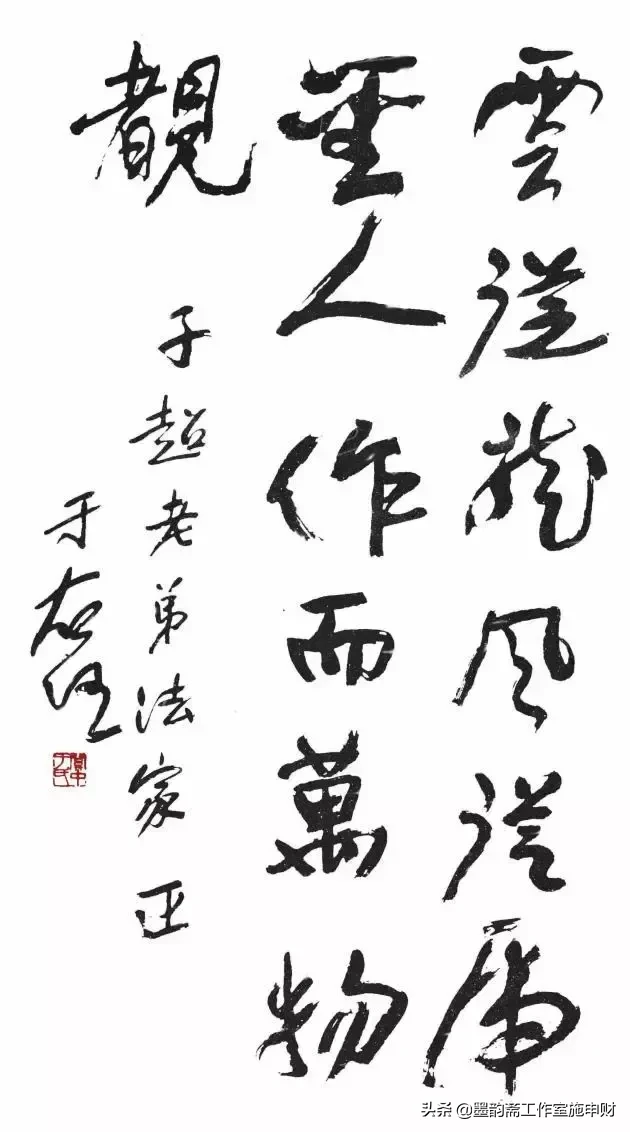 雲從龍風從虎
聖人作而萬物
覩
子超老弟法家正
于右任
關中于氏
头条 @墨韵斋工作室施申财